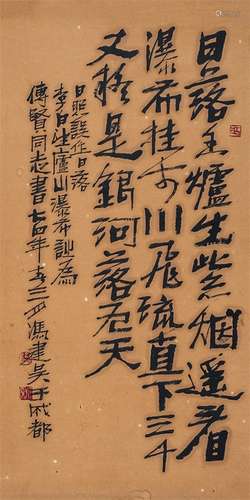 日落香爐生紫烟遥看
瀑布挂前川飛流直下三千
丈疑是銀河落九天
日照誤作日落
李白望廬山瀑布詩為
傅賢同志書七四年春三月馮建吴于成都